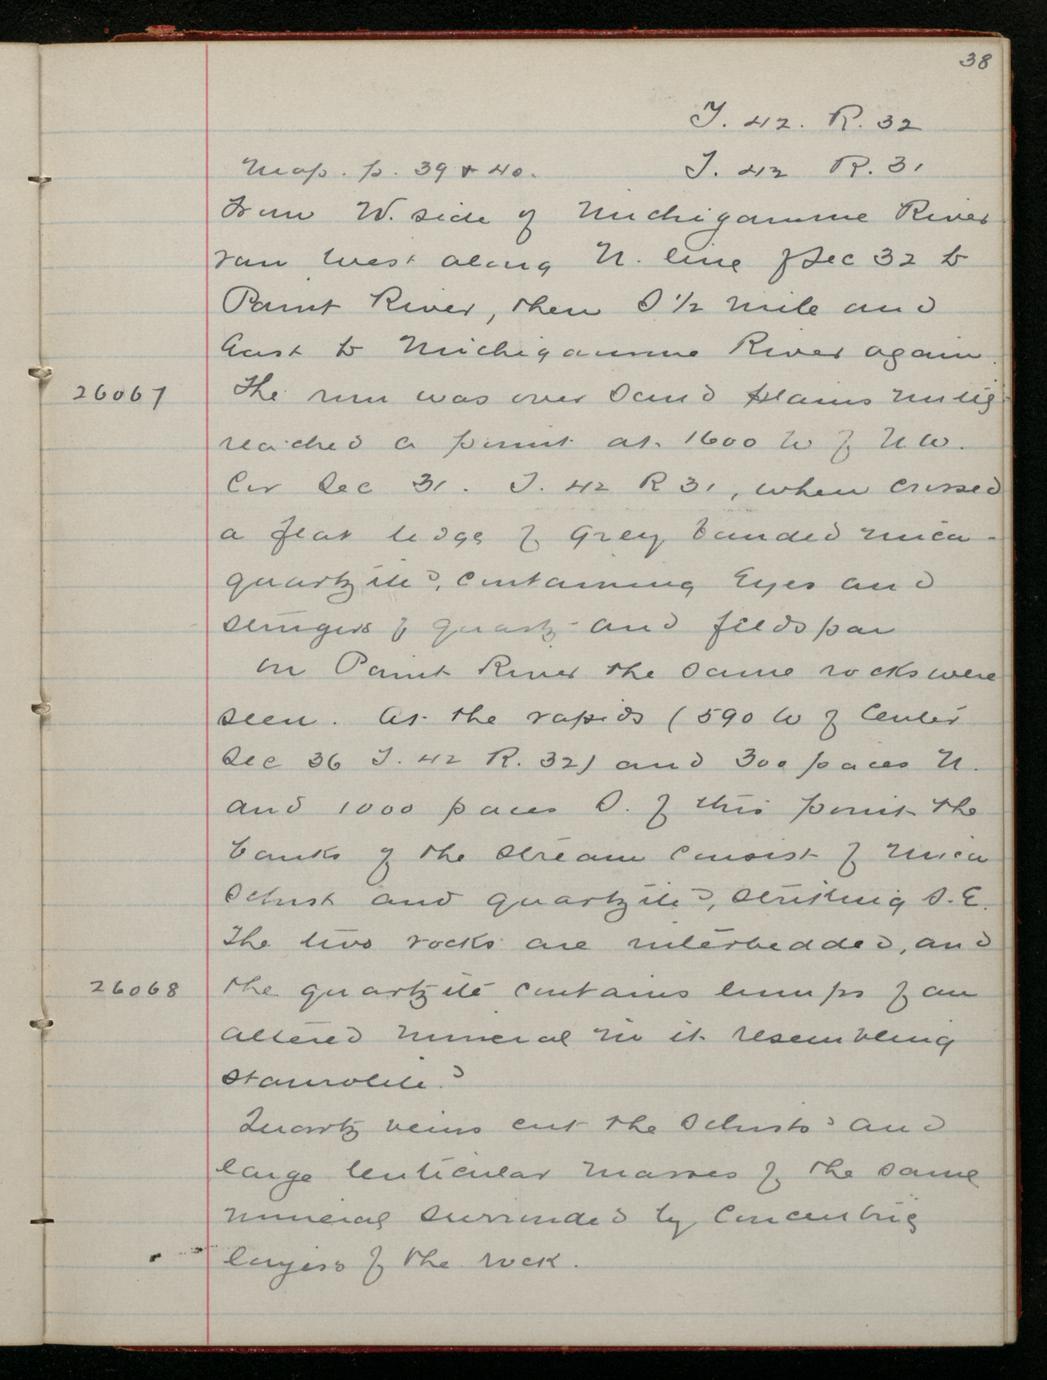 38
T. 42. R. 32
Map. p. 39 & 40. T. 42 R. 31
From W. side of Michigamme River
ran West along N. line of Sec 32 to
Paint River, then S 1/2 mile and
East to Michigamme River again.
26067 The run was over Sand plains until
reached a point at 1600 W of N W.
Cor Sec 31. T. 42 R 31, when crossed
a flat ledge of Grey banded mica-
quartzite, containing Eyes and
stringers of quartz and feldspar
On Paint River the same rocks were
seen. At the rapids (590 W of Center
Sec 36 T. 42 R. 32) and 300 paces N.
and 1000 paces S. of this point the
banks of the stream consist of mica
Schist and quartzite, striking S. E.
The two rocks are interbedded, and
26068 the quartzite contains lumps of an
altered mineral in it resembling
staurolite.
Quartz veins cut the Schists and
large lenticular masses of the same
mineral surrounded by Concentric
layers of the rock.